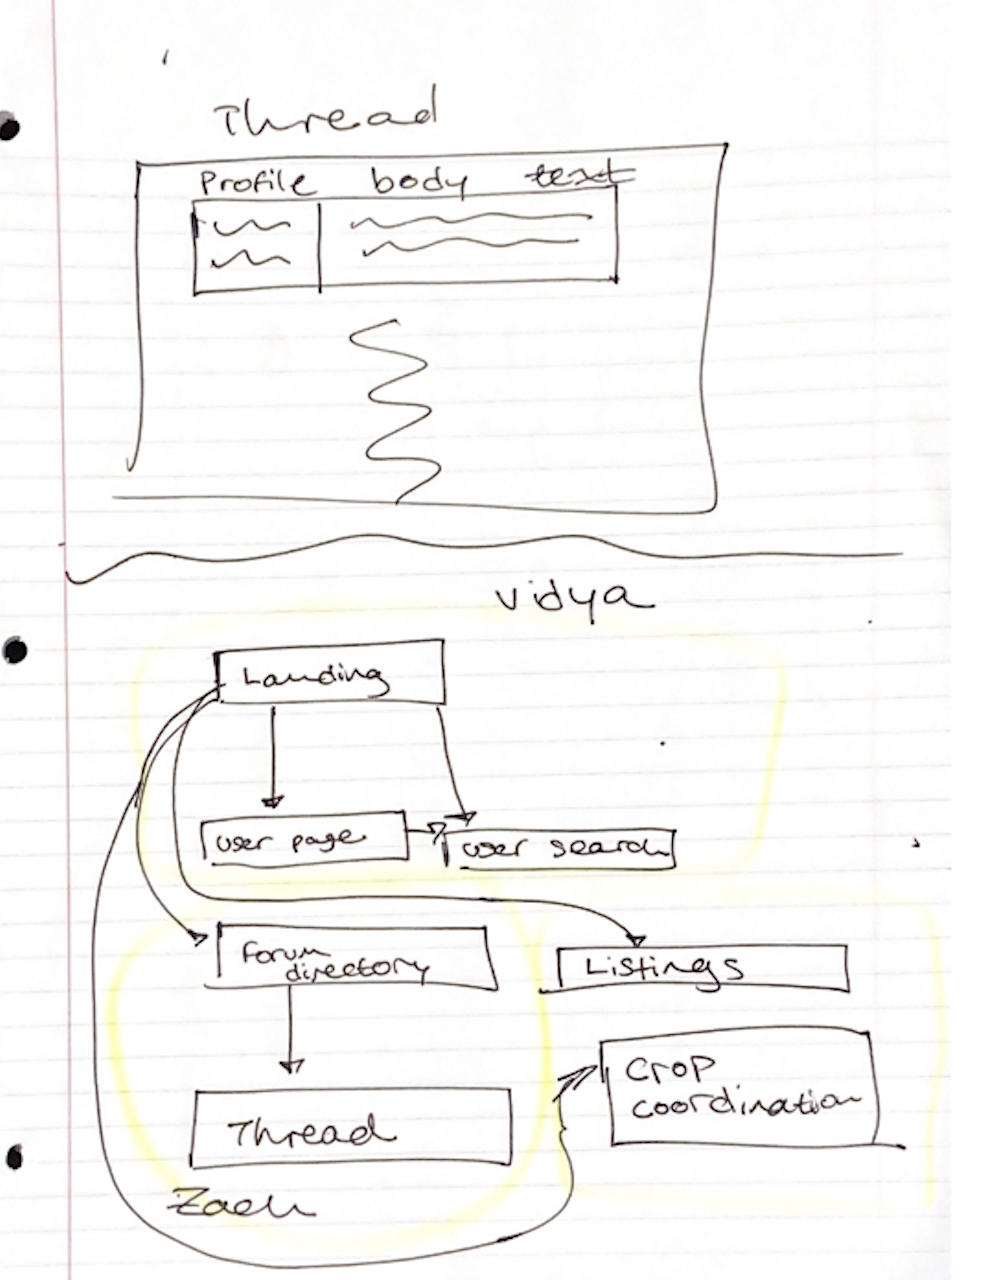 Thread
Profile body text
vidya
Landing
user page
user search
Forum
directory
Listings
Crop
coordination
Thread
Zach